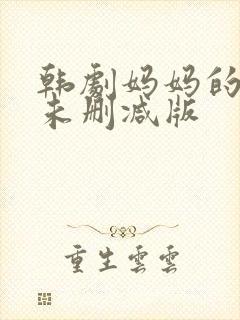 韩剧妈妈的
未删减版
重生雲雲